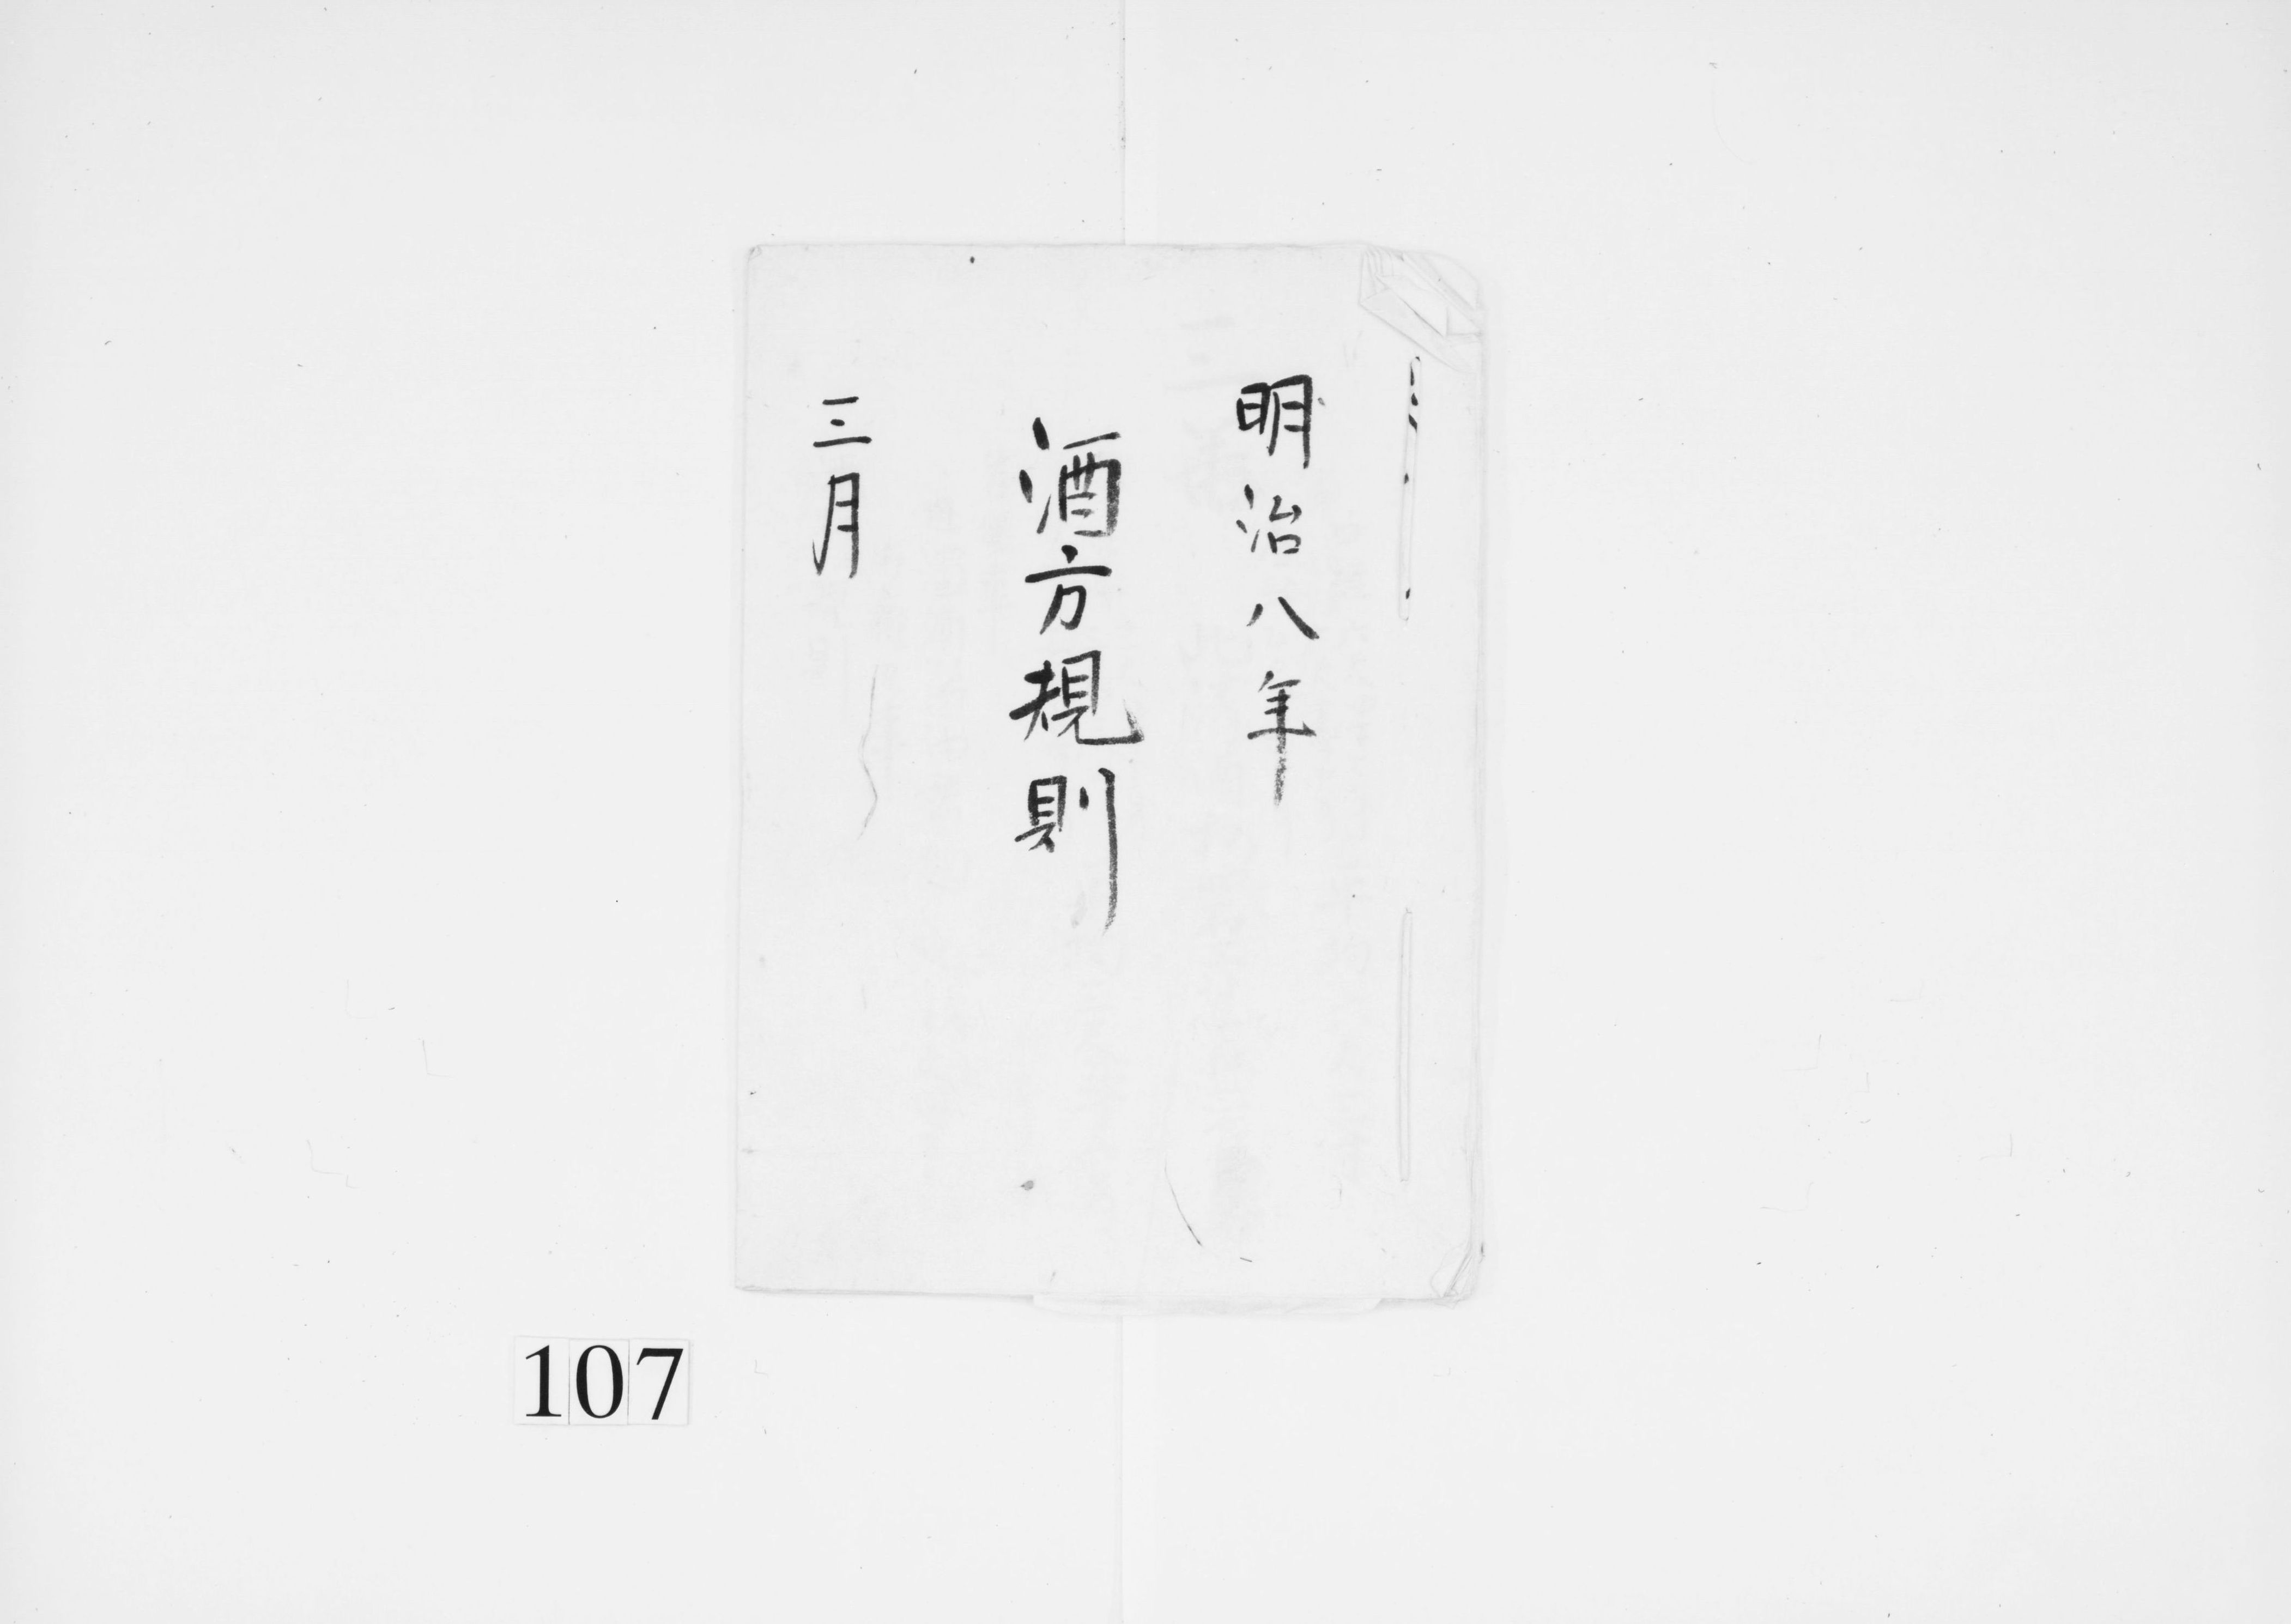 明治八年
酒方規則
三月
107